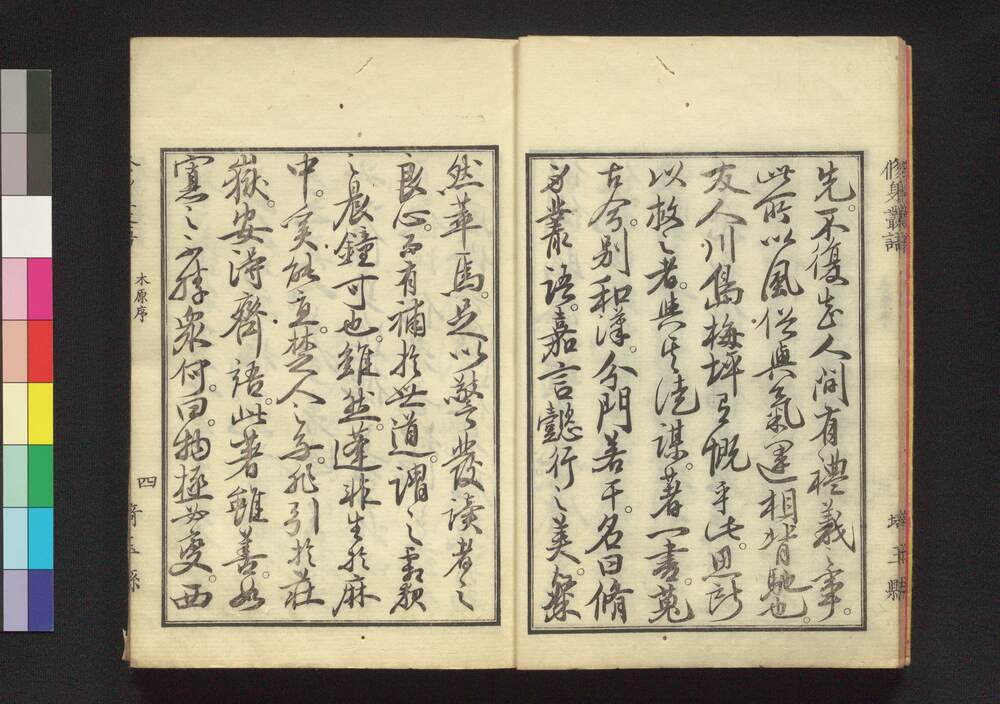 修身叢語
埼玉縣
先。不復知人間有禮義之事。
此所以風俗與氣運相背馳也。
友人川島梅坪有慨乎此。思所
以救之者。與其徒謀。著一書。蒐
古今。別和漢。分門若干。名曰脩
身叢語。嘉言懿行之美。粲
然華焉。足以警發讀者之
良心。而有補於世道。謂之
之晨鐘可也。雖然。蓬非生於麻
中。奚能直。楚人之子。非引於莊
嶽。安得齊語。此著雖善如
寡之不勝衆何。曰。物極必變。西
木原序
四